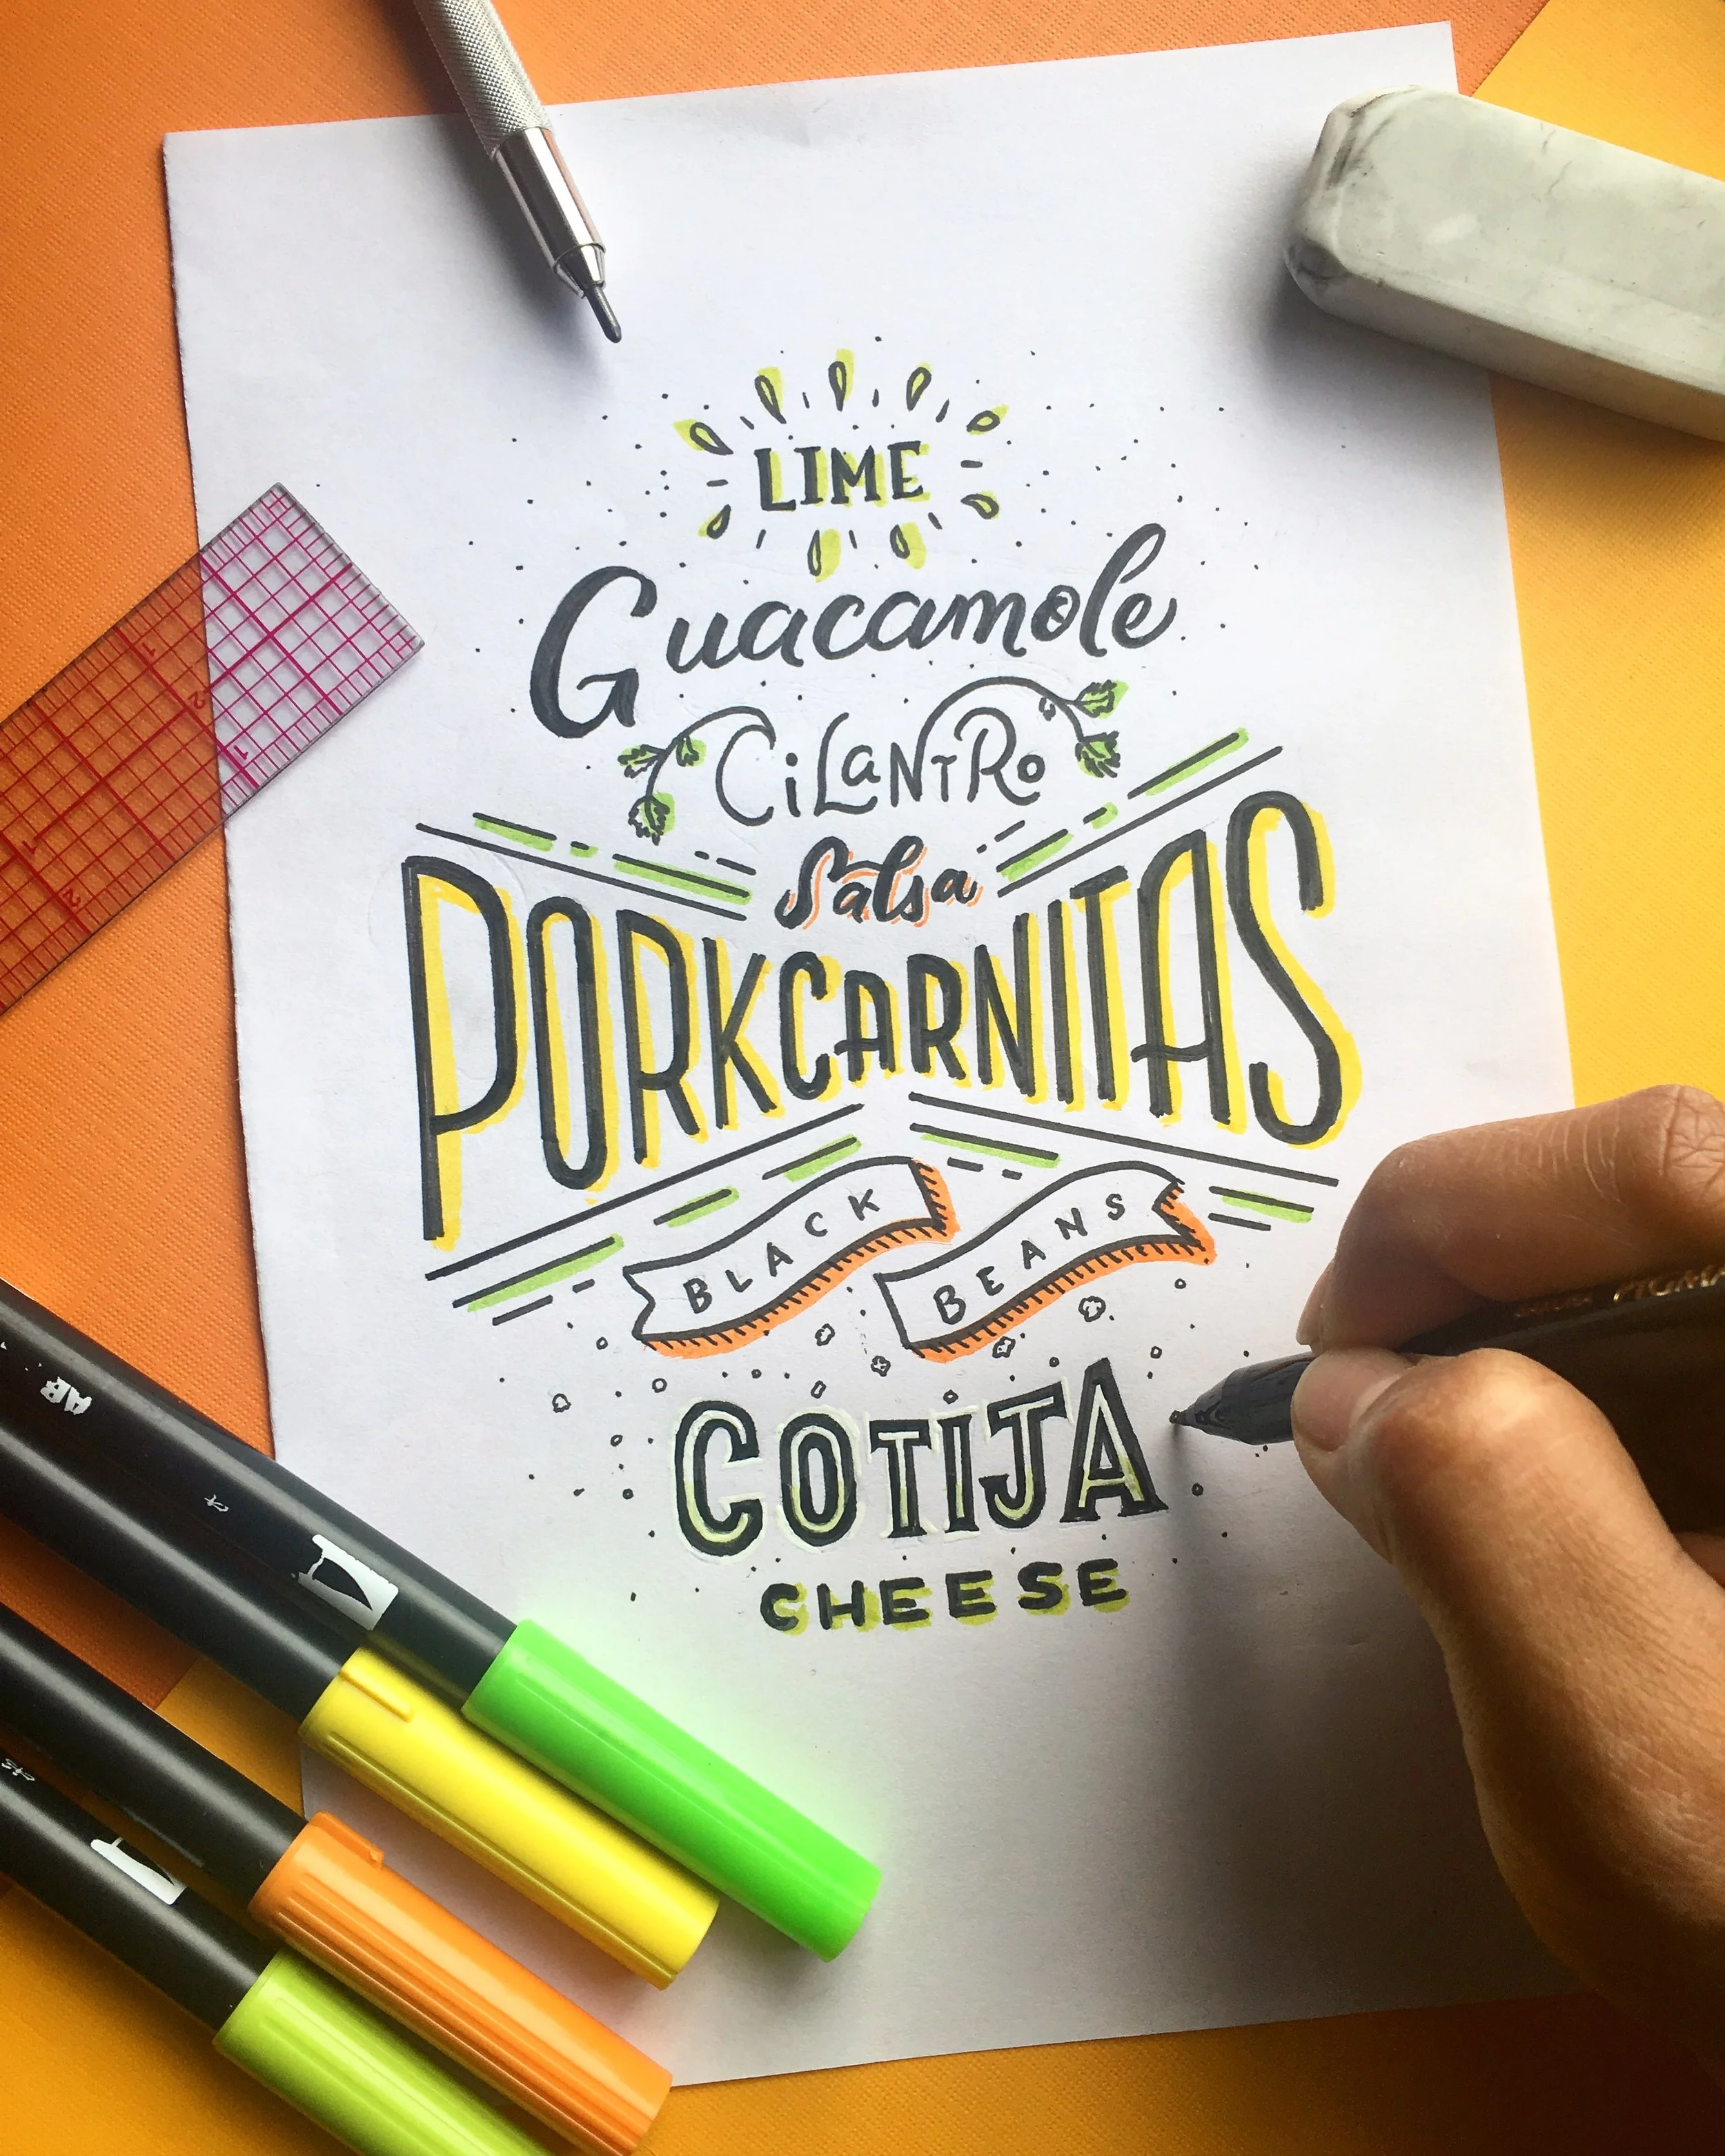 LIME
Guacamole
CiLaNTRo
Salsa
PORKCARNITAS
BLACK BEANS
COTIJA
CHEESE